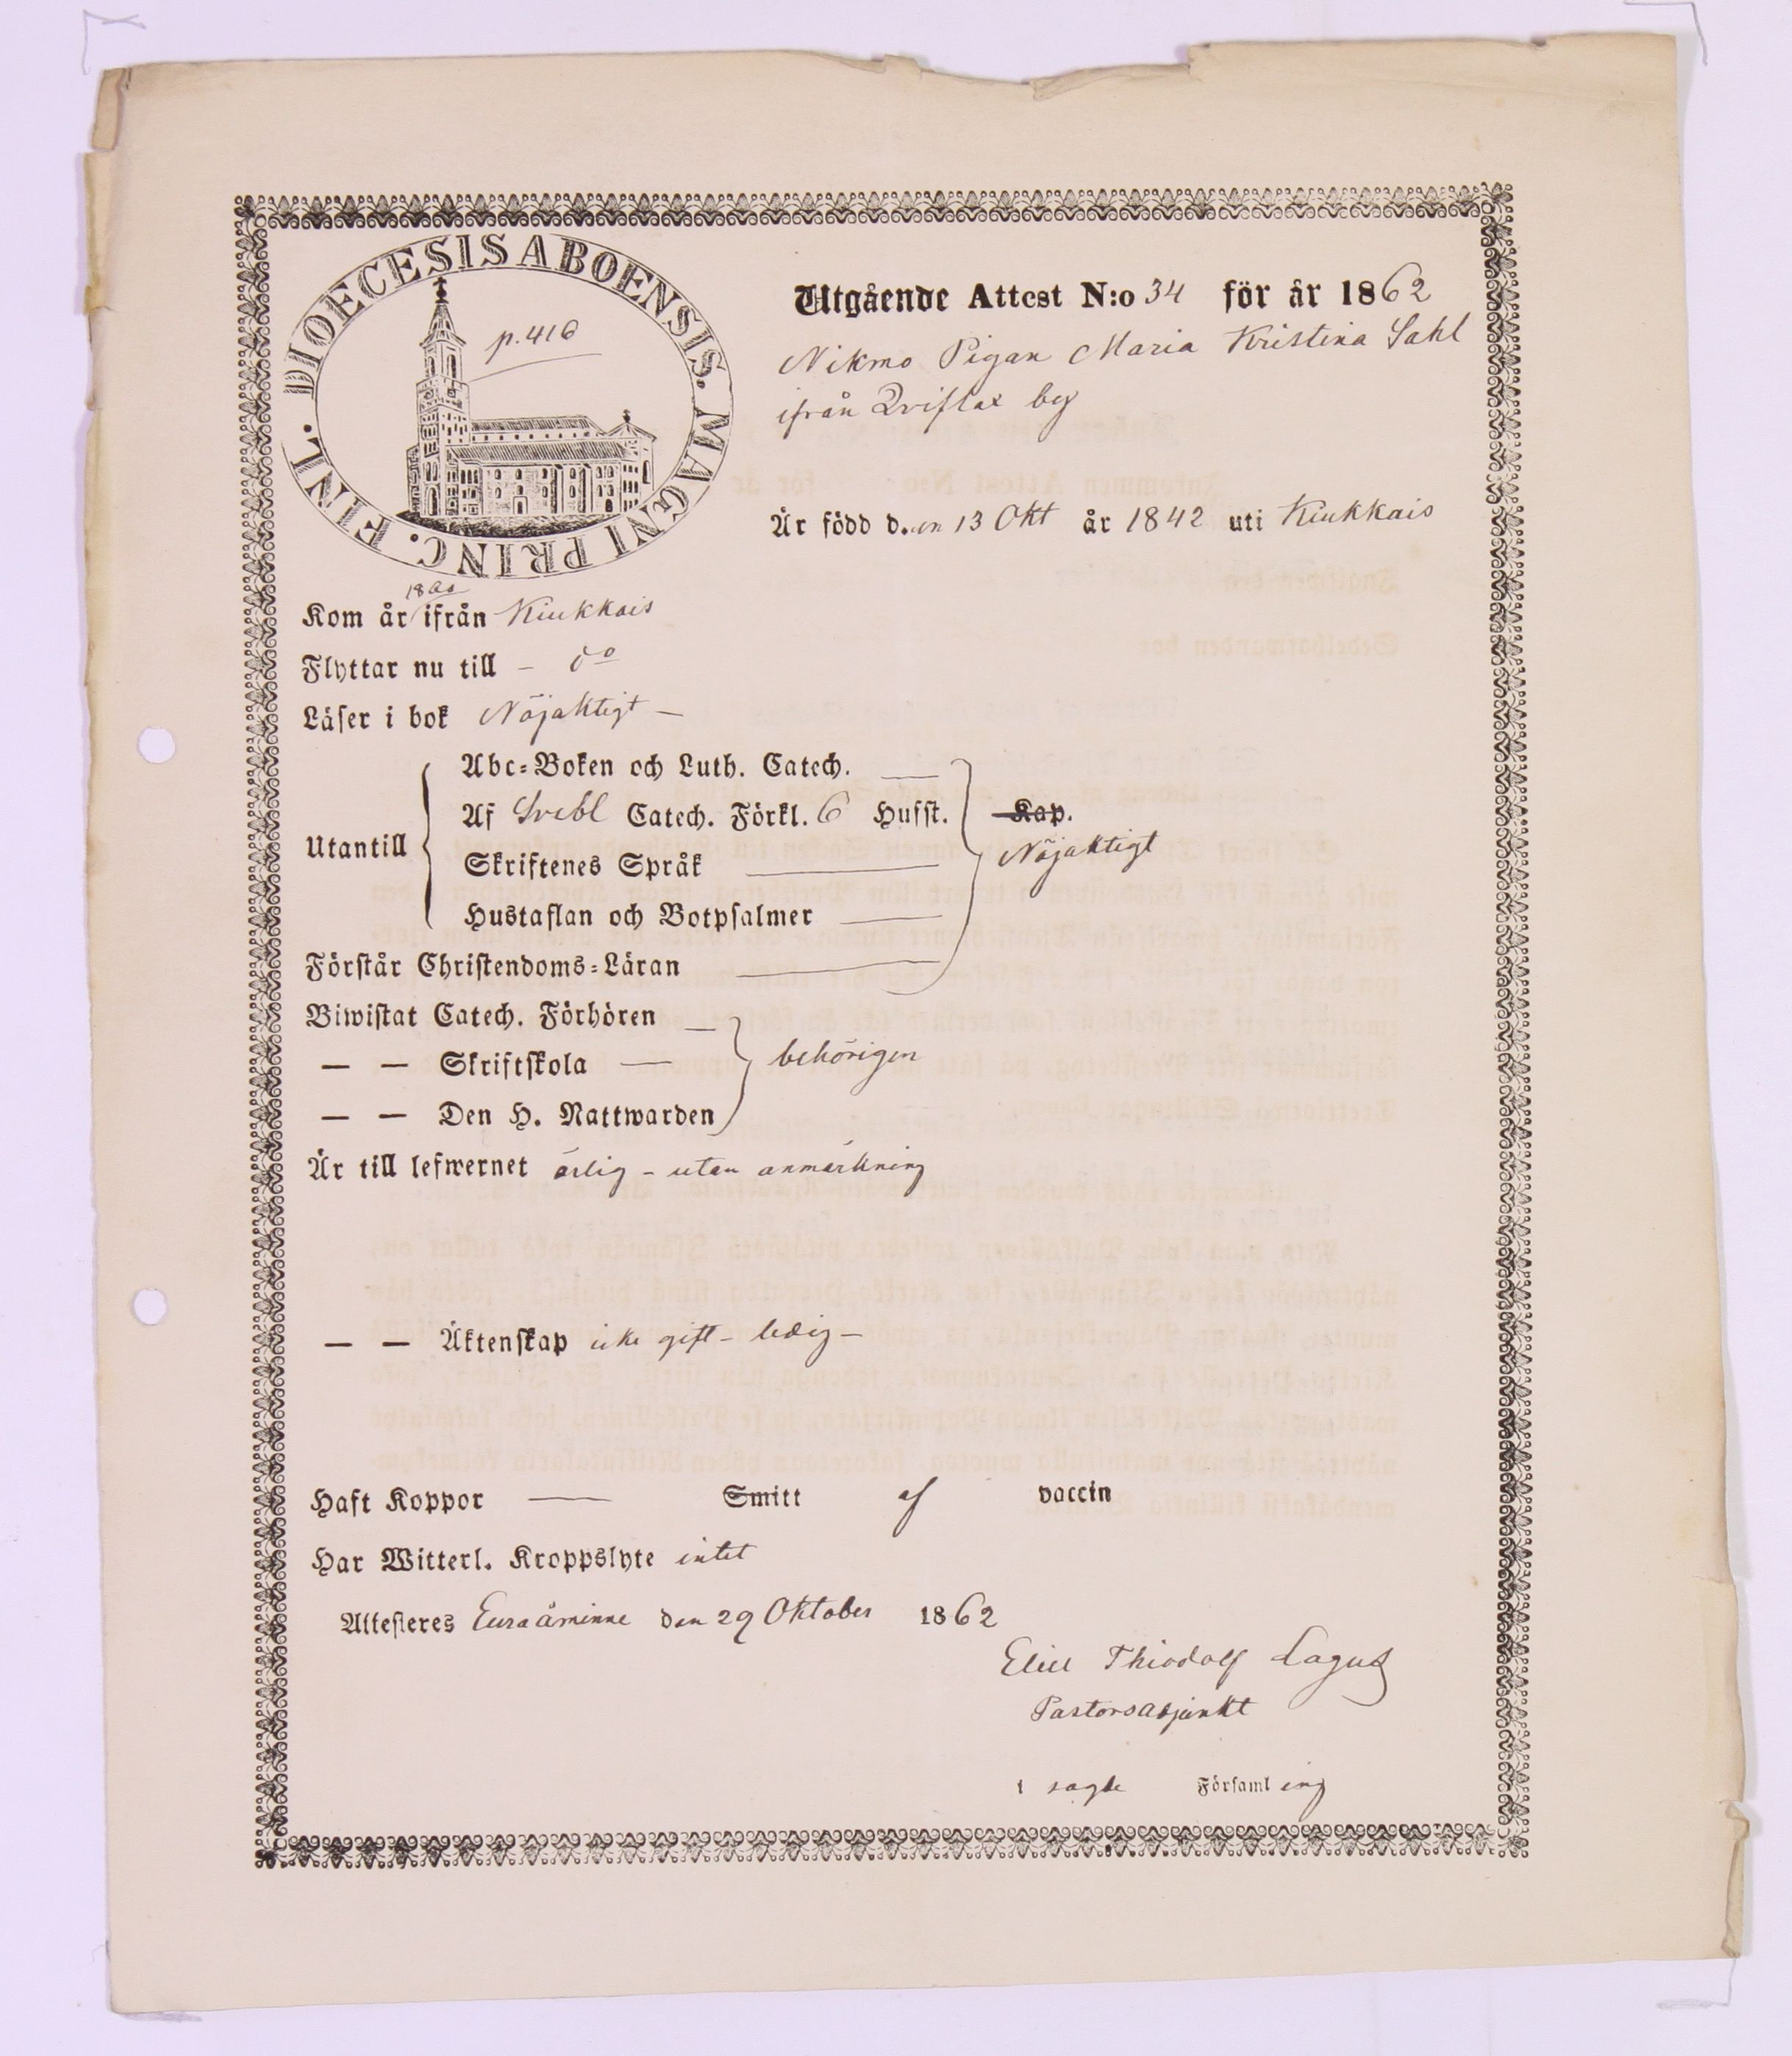 DIOECESIS ABOENSIS. MAGNI PRINC. FINL.
p. 416
Utgående Attest N:o 34 för år 1862
Nikmo Pigan Maria Kristina Sahl
ifrån by
Är född d. en 13 Okt år 1842 uti Kiukkais
Kom år 1860 ifrån Kiukkais
Flyttar nu till – do
Läser i bok Nöjaktigt –
Abc-Boken och Luth. Catech. —
Af Svebl Catech. Förkl. 6 Hufst. Kap.
Utantill
Skriftenes Språk — Nöjaktigt
Hustaflan och Botpsalmer —
Förstår Christendoms-Läran —
Biwistat Catech. Förhören —
— — Skriftskola — behörigen
— — Den H. Nattwarden
Är till lefwernet ärlig – utan anmärkning
— — Äktenskap icke gift – ledig –
Haft Koppor — Smitt af vaccin
Har Witterl. Kroppslyte intet
Attesteres Euraåminne den 29 Oktober 1862
Eliel Thiodolf Lagus
Pastorsadjunkt
i sagde Församling